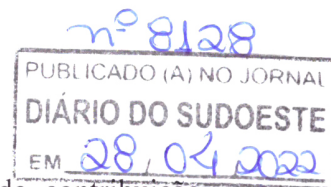 nº 8128
PUBLICADO (A) NO JORNAL
DIÁRIO DO SUDOESTE
EM 28, 04, 2022